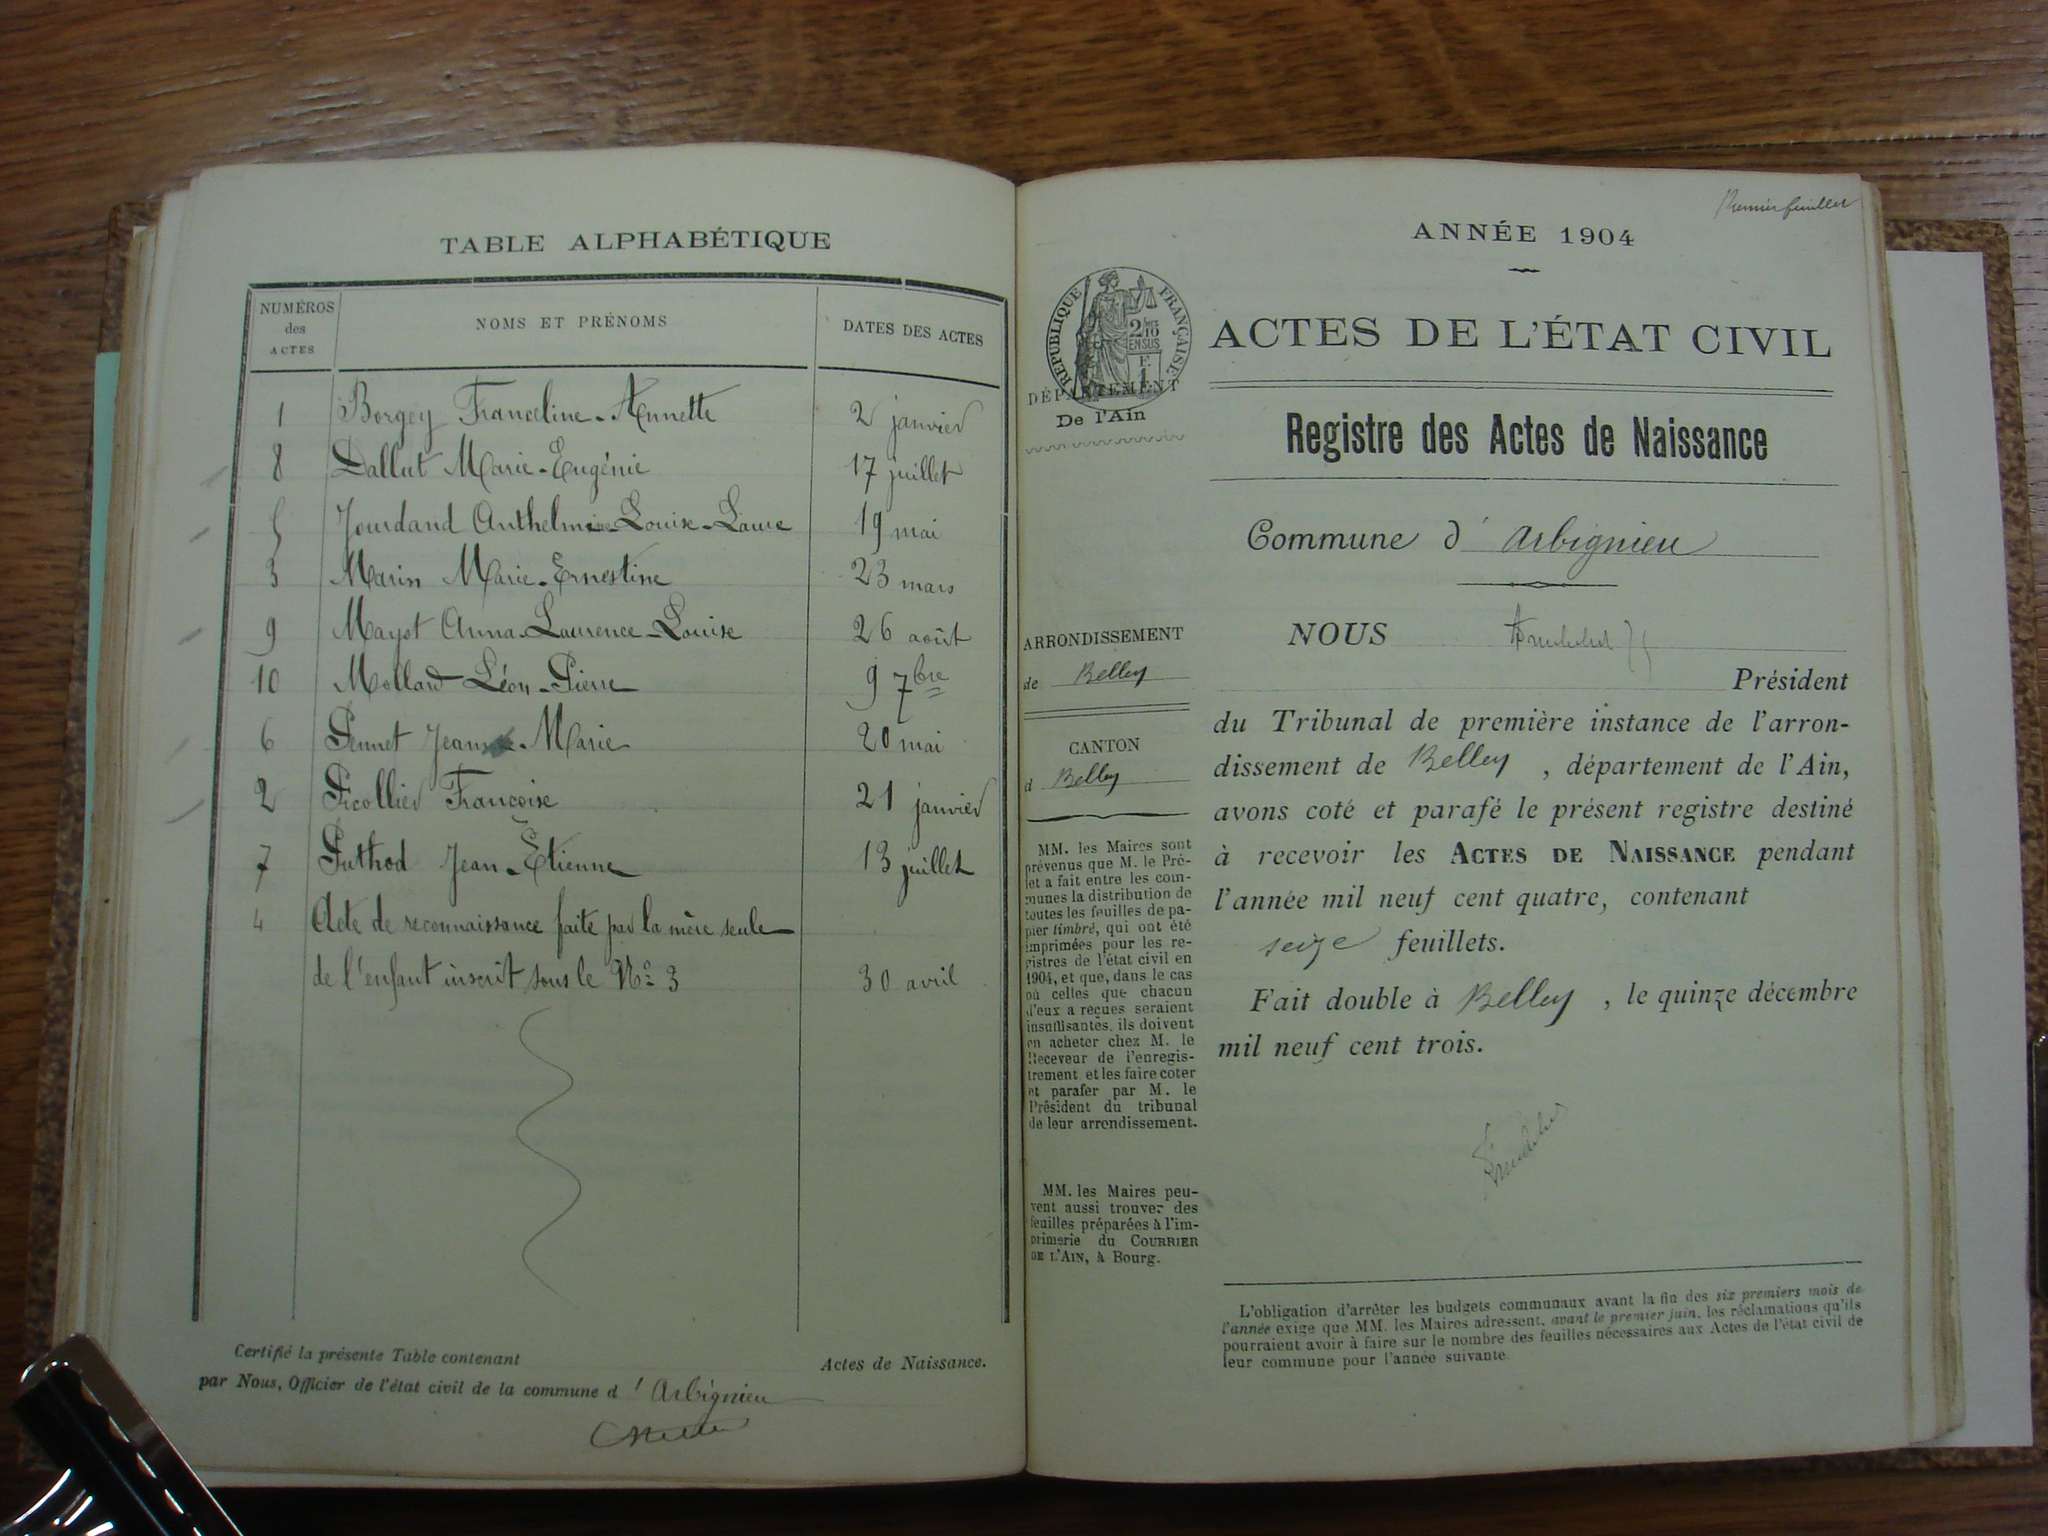 TABLE ALPHABÉTIQUE
NUMÉROS des ACTES NOMS ET PRÉNOMS DATES DES ACTES
1 Borgey Franceline-Annette 2 janvier
8 Dallut Marie-Eugénie 17 juillet
5 Jourdand Anthelmine-Louise-Laure 19 mai
3 Marin Marie-Ernestine 23 mars
9 Mayot Anna-Laurence-Louise 26 août
10 Mollard Léon-Pierre 9 7bre
6 Pennet Jean-Marie 20 mai
2 Picollier Françoise 21 janvier
7 Puthod Jean-Etienne 13 juillet
4 Acte de reconnaissance faite par la mère seule
de l'enfant inscrit sous le No 3 30 avril
Certifié la présente Table contenant Actes de Naissance.
par Nous, Officier de l'état civil de la commune d'Arbignieu
Premier feuillet
ANNÉE 1904
RÉPUBLIQUE FRANÇAISE
2/10 EN SUS
DÉPARTEMENT
De l'Ain
ACTES DE L'ÉTAT CIVIL
Registre des Actes de Naissance
Commune d'Arbignieu
ARRONDISSEMENT
de Belley
CANTON
d Belley
MM. les Maires sont
prévenus que M. le Pré-
fet a fait entre les com-
munes la distribution de
toutes les feuilles de pa-
pier timbré, qui ont été
imprimées pour les re-
gistres de l'état civil en
1904, et que, dans le cas
où celles que chacun
d'eux a reçues seraient
insuffisantes, ils doivent
en acheter chez M. le
Receveur de l'enregis-
trement et les faire coter
et parafer par M. le
Président du tribunal
de leur arrondissement.
MM. les Maires peu-
vent aussi trouver des
feuilles préparées à l'im-
primerie du COURRIER
DE L'AIN, à Bourg.
NOUS
Président
du Tribunal de première instance de l'arron-
dissement de Belley, département de l'Ain,
avons coté et parafé le présent registre destiné
à recevoir les ACTES DE NAISSANCE pendant
l'année mil neuf cent quatre, contenant
seize feuillets.
Fait double à Belley, le quinze décembre
mil neuf cent trois.
L'obligation d'arrêter les budgets communaux avant la fin des six premiers mois de
l'année exige que MM. les Maires adressent, avant le premier juin, les réclamations qu'ils
pourraient avoir à faire sur le nombre des feuilles nécessaires aux Actes de l'état civil de
leur commune pour l'année suivante.